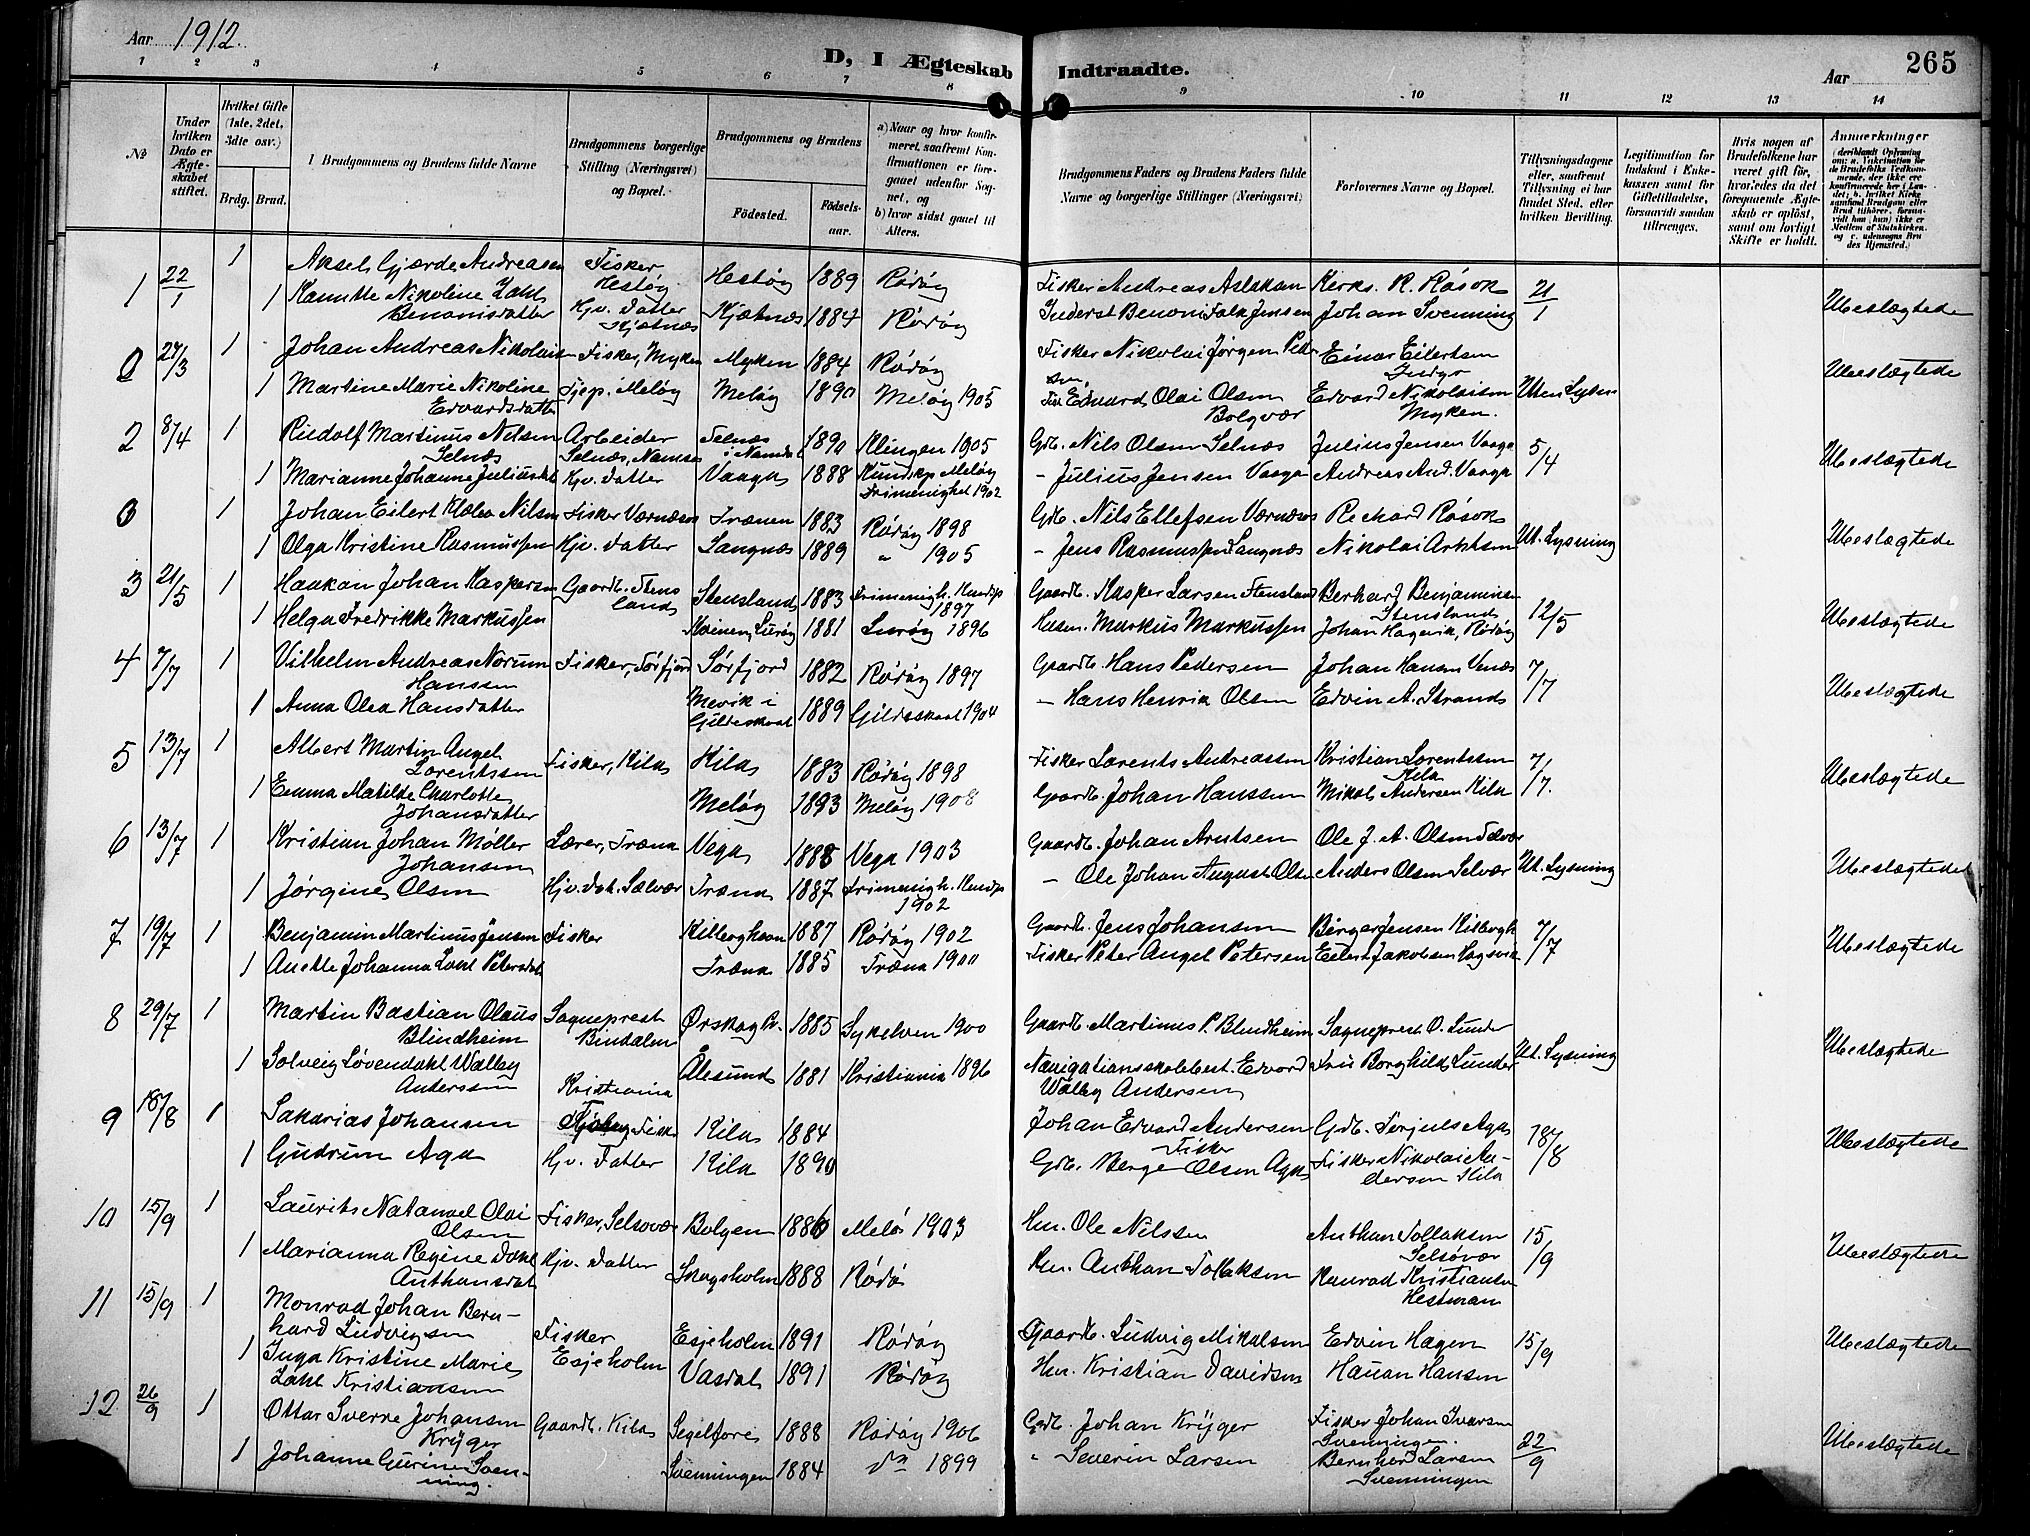 Aar 1912.
D, I Ægteskab Indtraadte.
Aar
265
1 2 3 4 5 6 7 8 9 10 11 12 13 14
No
Under hvilken Dato er Ægteskabet stiftet.
Hvilket Gifte (1ste, 2det, 3die osv.)
Brdg. Brud.
Brudgommens og Brudens fulde Navne
Brudgommens borgerlige Stilling (Næringsvei) og Bopæl.
Brudgommens og Brudens
Fødested.
Fødselsaar.
a) Naar og hvor konfirmeret, saafremt Konfirmationen er foregaaet udenfor Sognet, og
b) hvor sidst gaaet til Alters.
Brudgommens Faders og Brudens Faders fulde Navne og borgerlige Stillinger (Næringsvei)
Forlovernes Navne og Bopæl.
Tillysningsdagene eller, saafremt Tillysning ei har fundet Sted, efter hvilken Bevilling.
Legitimation for Indskud i Enkekassen samt for Giftetilladelse, forsaavidt saadan tiltrænges.
Hvis nogen af Brudefolkene har været gift før, hvorledes da det foregaaende Ægteskab er opløst, samt om lovligt Skifte er holdt.
Anmærkninger
1 22/1 1 Aksel Gjærde Andreasen Fisker Hestøy Hestøy 1889 Rødøy Fisker Andreas Aslaksen Kirks. R. Røsok 21/1 Ubeslægtede
1 Nikoline Zahl Benonisdatter Hjv. Datter Kjøtnæs Kjøtnæs 1884 Rødøy Inderst Benoni Falk Jensen Johan Svenning
0 24/3 1 Johan Andreas Nikolaisen Fisker, Myken Myken 1884 Rødøy Fisker Nikolai Jørgen Pedersen Einar Eilertsen Indyr Uten Lysn Ubeslægtede
1 Martine Marie Nikoline Edvardsdatter Tjep. Meløy Meløy 1890 Meløy 1905 Fisk Edvard Olai Olsen Bolgvær Edvard Nikolaisen Myken.
2 8/4 1 Rudolf Martinus Nilsen Selnæs Arbeider Selnæs, Namsos Selnæs i Namdal 1890 Klingen 1905 Gdb. Nils Olsen Selnæs Julius Jensen Vaaga 5/4 Ubeslægtede
1 Marianne Johanne Juliusdt Hjv. Datter Vaaga 1888 Kundskp Meløy Frimenighet 1902 - Julius Jensen Vaaga Andreas And. Vaaga
0 1 Johan Eilert Nilsen Fisker Værnæsos Trænen 1883 Rødøy 1898 Gdb. Nils Ellefsen Værnæsos Richard Røsok Ut. Lysning Ubeslægtede
1 Olga Kristine Rasmussen Hjv. Datter Langnæs 1889 " 1905 - Jens Rasmussen Langnæs Nikolai Arntsen
3 21/5 1 Haakan Johan Kaspersen Gaardb. Stensland Stensland 1883 Frimenigh. Kundsp 1897 Gaardb. Kasper Larsen Stensland Berhard Benjaminsen Stensland 12/5 Ubeslægtede
1 Helga Fredrikke Markussen Kvinen, Lurøy 1881 Lurøy 1896 Husm. Markus Markussen Johan Hagevik, Rødøy
4 7/7 1 Vilhelm Andreas Norum Hanssen Fisker, Sørfjord Sørfjord 1882 Rødøy 1897 Gaardb. Hans Pedersen Johan Hansen Venæs 7/7 Ubeslægtede
1 Anna Olea Hansdatter Mevik i Gildeskaal 1889 Gildeskaal 1904 - Hans Henrik Olsen Edvin A. Strand
5 13/7 1 Albert Martin Angel Lorentssen Fisker, Kila Kila 1883 Rødøy 1898 Fisker Lorents Andreassen Kristian Lorentssen Kila 7/7. Ubeslægtede
1 Emma Matilde Charlotte Johansdatter Meløy 1893 Meløy 1908 Gaardb. Johan Hanssen Mikal Andersen Kila
6 13/7 1 Kristian Johan Møller Johansen Lærer, Træna Vega 1888 Vega 1903 Gaardb. Johan Arntsen Ole J. A. Olsen Selvær Ut. Lysning Ubeslægtede
1 Jørgine Olsen Hjv. Dat. Selvær Træna 1887 Frimenigh. Kundsp 1902 - Ole Johan August Olsen Anders Olsen Selvær
7 19/7 1 Benjamin Martinus Jensen Fisker Kilboghavn 1887 Rødøy 1902 Gaardb. Jens Johansen Birger Jensen Kilbogh 7/7 Ubeslægtede
1 Anette Johanna Petersdat Træna 1885 Træna 1900 Fisker Peter Angel Petersen Eilert Jakobsen Hagevik
8 29/7 1 Martin Bastian Olaus Blindheim Sogneprest Bindalen Ørskog Pr. 1885 Sykelven 1900 Gaardb. Martinus P. Blindheim Sogneprest O. Lunder Ut. Lysning Ubeslægtede
1 Solveig Løvendahl Walley Anderssen Kristiania Ålesund 1881 Kristiania 1896 Navigationsskolebest. Edvard Walley Andersen Fru Borghild Lunder
9 18/8 1 Sakarias Johansen Fisk Kila 1884 Johan Edvard Andersen Fisker Gdb. Torjuls Aga 18/8 Ubeslægtede
1 Gudrun Aga Hjv. Datter Kila 1890 Gdb. Børge Olsen Aga Fisker Nikolai Andersen Kila
10 15/9 1 Laurits Natanael Olai Olsen Fisker, Selsøvær Bolgen 1886 Melø 1903 Hm. Ole Nilssen Anthan Tollaksen Selsøvær 15/9 Ubeslægtede
1 Marianna Regine Dahl Anthansdat Hjv. Datter Skogsholm 1888 Rødø Hm. Anthan Tollaksen Konrad Kristiansen Hestman
11 15/9 1 Monrad Johan Bernhard Ludvigsen Fisker Esjeholm Esjeholm 1891 Rødøy Gaardb. Ludvig Mikalsen Edvin Hagen 15/9 Ubeslægtede
1 Inga Kristine Marie Zahl Kristiansen Vasdal 1891 Rødøy Hm. Kristian Davidsen Hauan Hansen
12 26/9 1 Ottar Sverre Johansen Krÿger Gaardb. Kila Segelfore 1888 Rødøy 1906 Gdb. Johan Krÿger Fisker Johan Ivarsen Svenningen. 22/9 Ubeslægtede
1 Johanne Gurine Svenning. Svenningen 1884 do 1899 " Severin Larsen Bernhard Larsen Svenningen